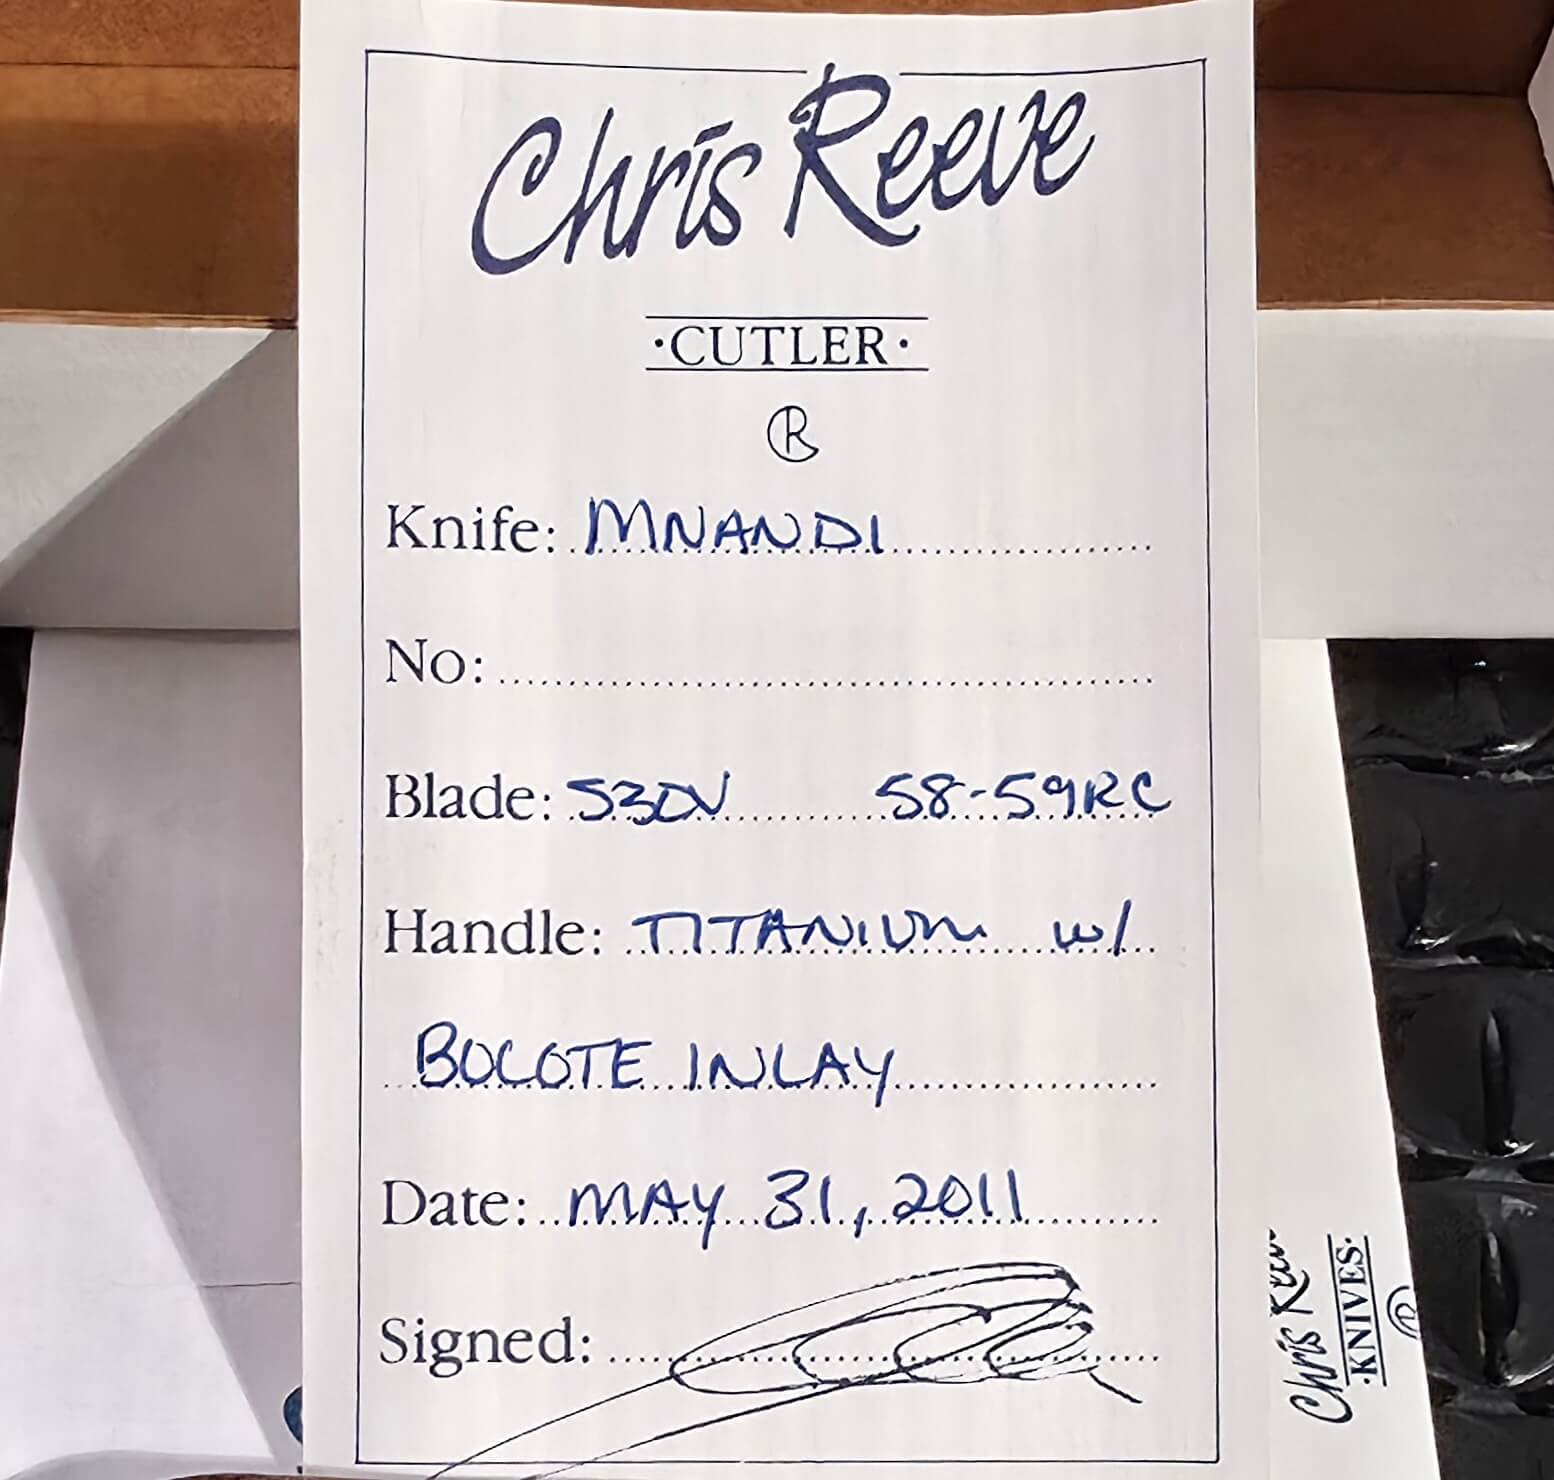 Chris Reeve
·CUTLER·
R
Knife: MNANDI
No:
Blade: S30V 58-59RC
Handle: TITANIUM w/
BOCOTE INLAY
Date: MAY 31, 2011
Signed:
Chris Reeve
·KNIVES·
R